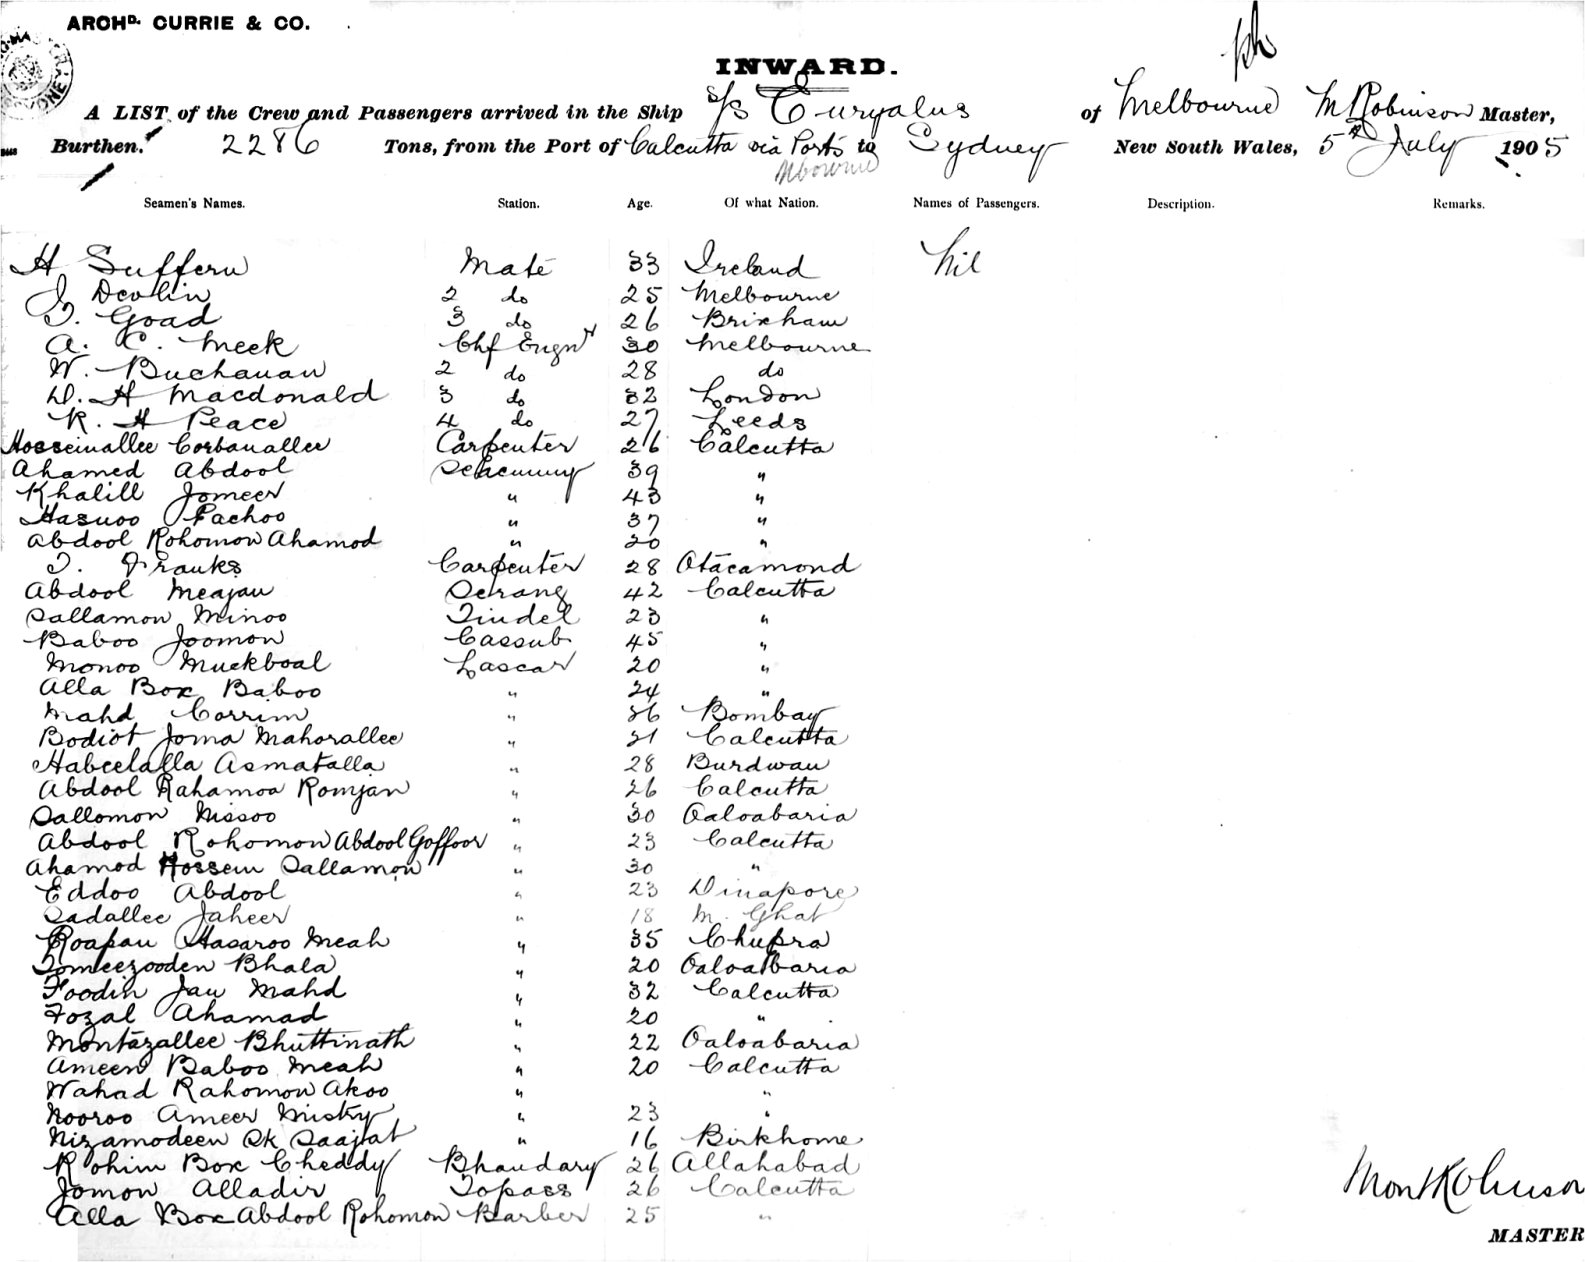 ARCHD. CURRIE & CO.
INWARD.
A LIST of the Crew and Passengers arrived in the Ship s/s Euryalus of Melbourne M Robinson Master,
Burthen. 2286 Tons, from the Port of Calcutta via Ports to Sydney New South Wales, 5th July 1905
Melbourne
Seamen's Names. Station. Age. Of what Nation. Names of Passengers. Description. Remarks.
H Suffern Mate 33 Ireland Nil
J Devlin 2 do 25 Melbourne
T. Goad 3 do 26 Brixham
A. C. Meek Chf Engnr 30 Melbourne
W. Buchanan 2 do 28 do
D. H Macdonald 3 do 32 London
R. H Peace 4 do 27 Leeds
Hosseinallee Corbanallee Carpenter 26 Calcutta
Ahamed Abdool Seacunny 39 "
Khalill Jomeer " 43 "
Hasnoo Pachoo " 37 "
Abdool Rohomon Ahamod " 20 "
T. Franks Carpenter 28 Otacamond
Abdool Meajan Serang 42 Calcutta
Sallamon Minoo Tindel 23 "
Baboo Joomon Cassub 45 "
Monoo Muckboal Lascar 20 "
Alla Box Baboo " 24 "
Mahd Corrim " 36 Bombay
Bodiot Joma Mahorallee " 21 Calcutta
Habeelalla Asmatalla " 28 Burdwan
Abdool Rahamoa Romjan " 26 Calcutta
Sallomon Nissoo " 30 Oaloabaria
Abdool Rohomon Abdool Goffoor " 23 Calcutta
Ahamod Hossein Sallamon " 30 "
Eddoo Abdool " 23 Dinapore
Sadallee Jaheer " 18 M. Ghat
Roapan Hasaroo Meah " 35 Chupra
Tomeezooden Bhala " 20 Oaloabaria
Foodin Jan Mahd " 32 Calcutta
Fozal Ahamad " 20 "
Montazallee Bhuttinath " 22 Oaloabaria
Ameen Baboo Meah " 20 Calcutta
Wahad Rahomon Akoo " "
Nooroo Ameer Mistry " 23 "
Nizamodeen Sk Saajat " 16 Birkhome
Rohim Box Cheddy Bhandary 26 Allahabad
Jomon Alladir Topass 26 Calcutta
Alla Box Abdool Rohomon Barber 25 "
MASTER